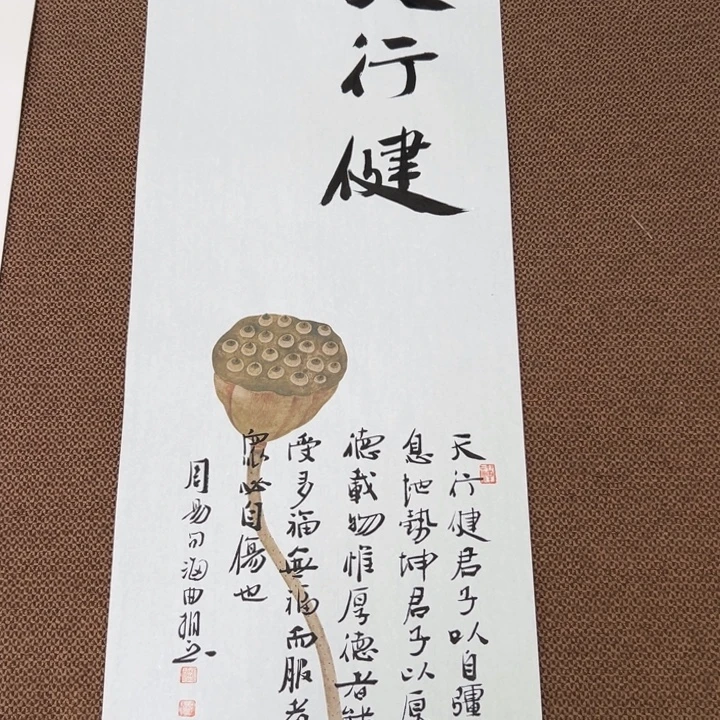 行健
天行健君子以自彊
息地勢坤君子以厚
德載物惟厚德者能
受多福無福而服者
眾必自傷也
周易句海曲